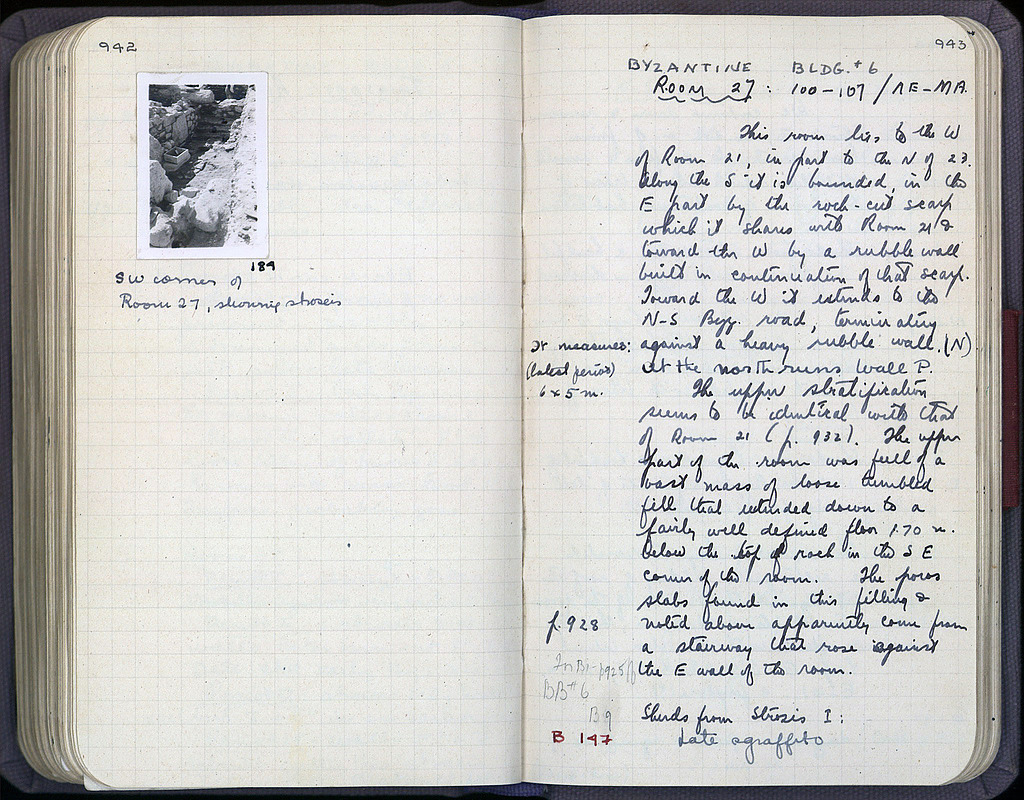 942
189
SW corner of
Room 27, showing strosis
943
BYZANTINE BLDG. #6
ROOM 27: 100-107 / ΛE-MA
This room lies to the W
of Room 21, in part to the N of 23.
Along the S it is bounded, in the
E part by the rock-cut scarp
which it shares with Room 21 &
toward the W by a rubble wall
built in continuation of that scarp.
Toward the W it extends to the
N-S Byz. road, terminating
against a heavy rubble wall. (N)
at the north runs Wall P.
It measures:
(latest period)
6 x 5 m.
The upper stratification
seems to be identical with that
of Room 21 (p. 932). The upper
part of the room was full of a
vast mass of loose tumbled
fill that extended down to a
fairly well defined floor 1.70 m.
below the top of rock in the SE
corner of the room. The poros
slabs found in this filling &
noted above apparently come from
a stairway that rose against
the E wall of the room.
p. 928
BB #6
B9
B 147
Sherds from Strosis I:
Late sgraffito